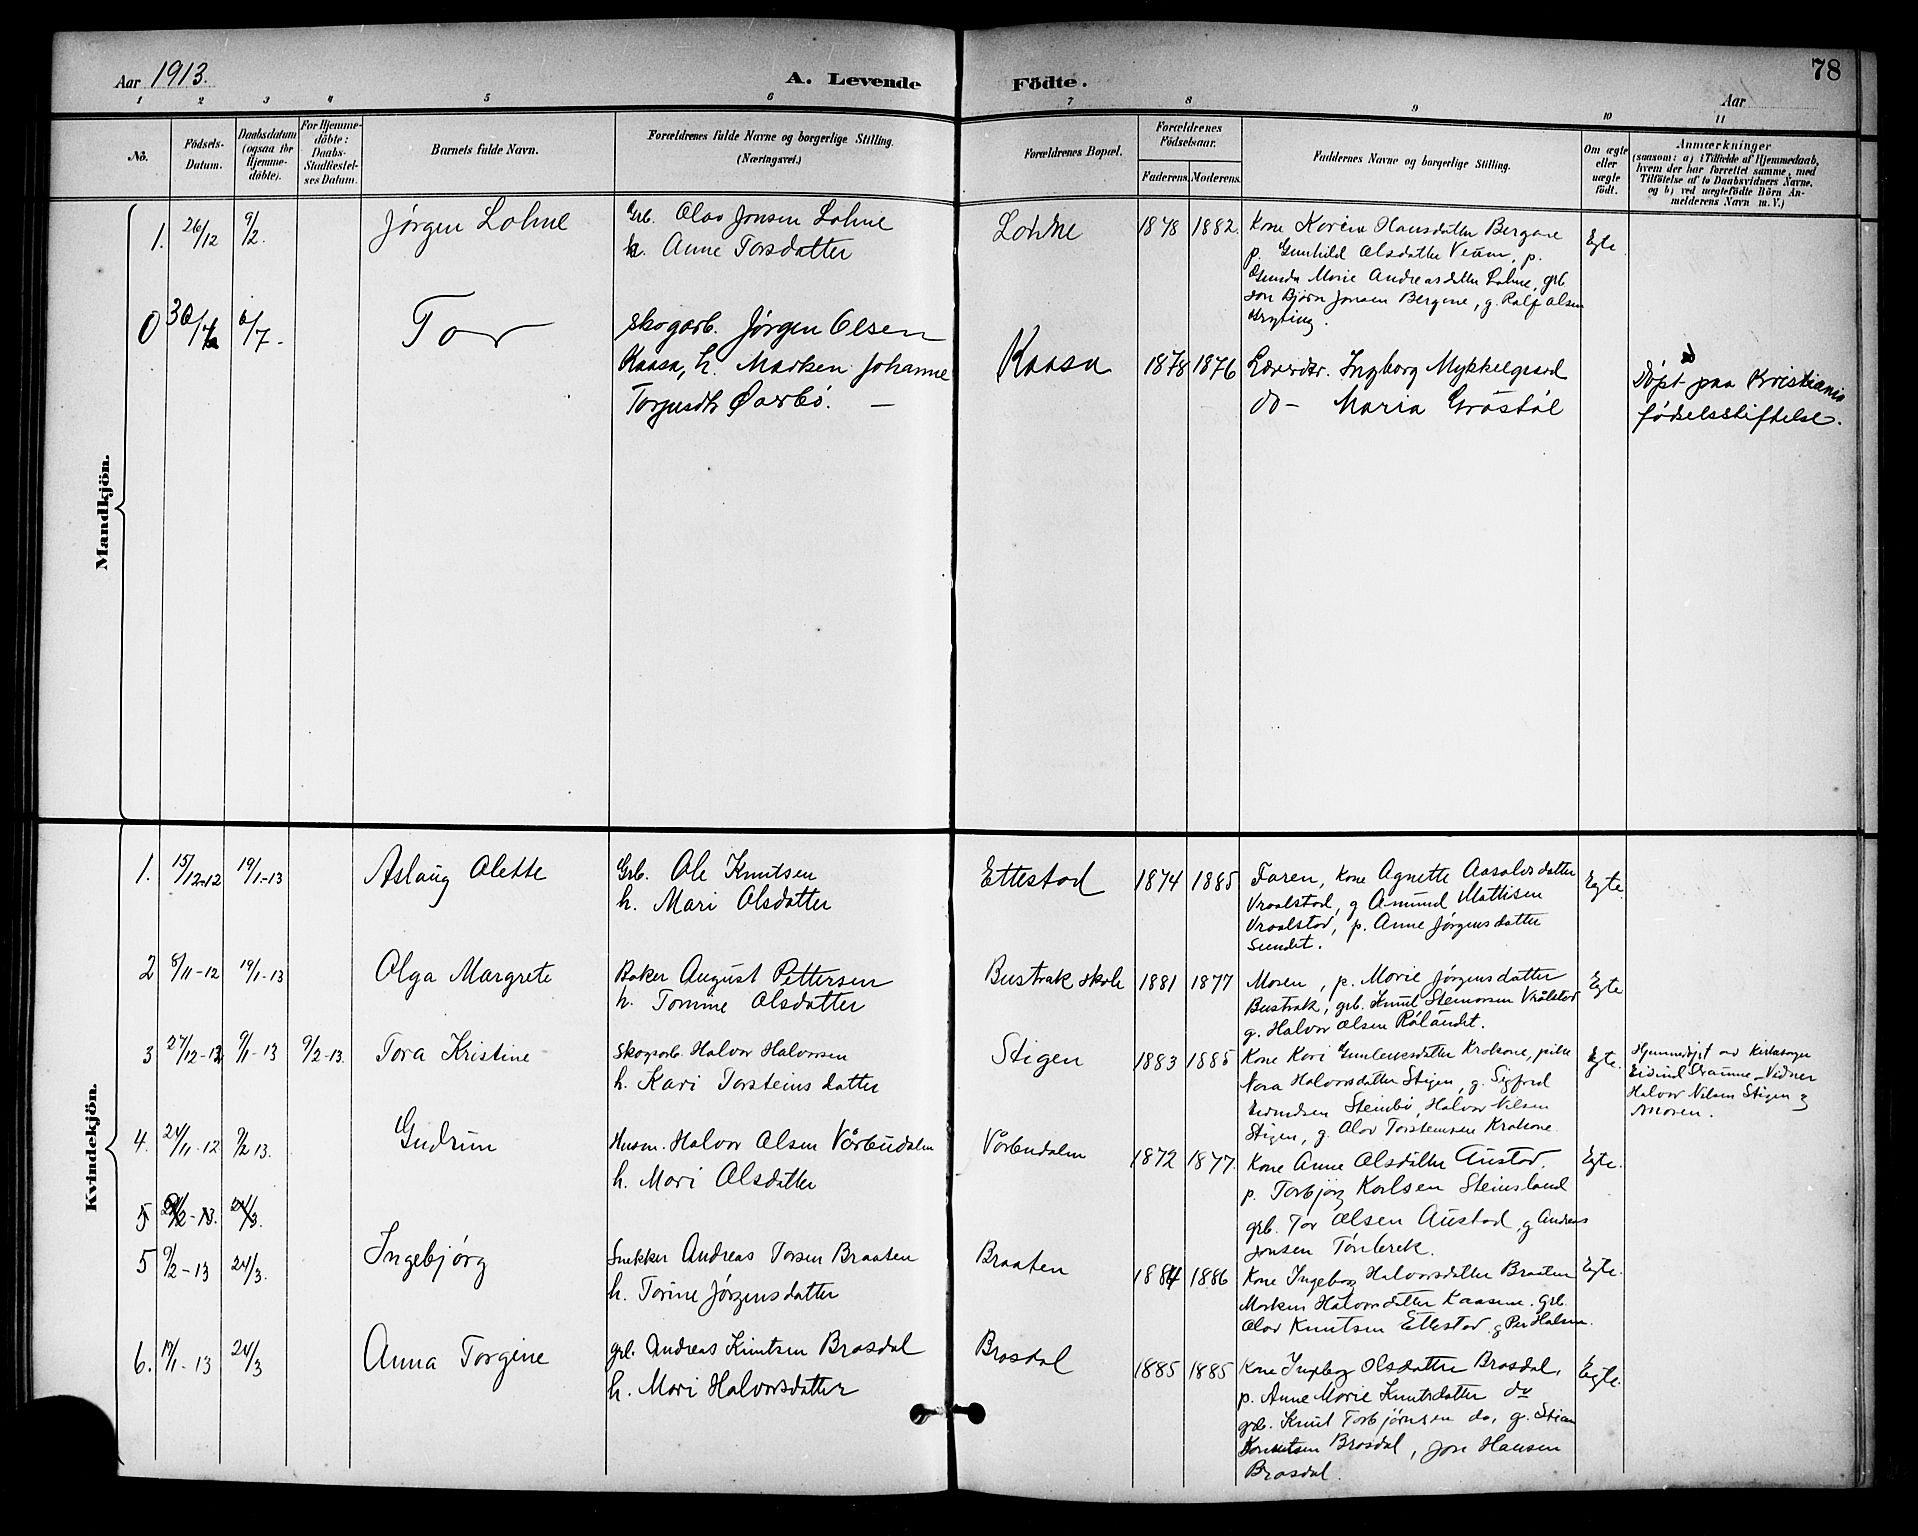 Aar 1913.
A. Levende Födte.
78
Aar
1 2 3 4 5 6 7 8 9 10 11
No.
Födsels-
Datum.
Daabsdatum
(ogsaa for
Hjemme-
döbte).
For Hjemme-
döbte:
Daabs-
Stadfæstel-
ses Datum.
Barnets fulde Navn.
Forældrenes fulde Navne og borgerlige Stilling.
(Næringsvei.)
Forældrenes Bopæl.
Forældrenes
Födselsaar.
Faderens. Moderens.
Faddernes Navne og borgerlige Stilling.
Om ægte
eller
uægte
födt.
Anmærkninger
(saasom: a) i Tilfælde af Hjemmedaab,
hvem der har forrettet samme, med
Tilföielse af to Daabsvidners Navne.
og b) ved uægtefödte Börn An-
melderens Navn m. V.)
Mandkjön.
1. 26/12 9/2. Jørgen Lohne
Grb. Olav Jonsen Lohne
h. Anne Torsdatter
Lohne
1878 1882.
Kone Karine Hansdatter Bergane
p. Gunhild Olsdatter Veum, p.
Marie Andreasdatter Lohne, grb
Bjørn Jonsen Bergene, g. Ralf Olsen
Egte
0 6/7. Tor
Skogarb. Jørgen Olsen
Kaasa, h. Marken Johanne
Øverbö. —
Kaasa
1878 1876
Ingborg Mykkelgaard
do — Maria Gråstöl
Döpt paa Kristiania
fødselsstiftelse.
Kvindekjön.
1. 15/12-12 19/1-13 Aslaug Olette
Grb. Ole Knutsen
h. Mari Olsdatter
Ettestad
1874 1885
Faren, kone Agnette Aasolvsdatter
Vraalstad, g Amund Mathisen
Vraalstad, p. Anne Jørgensdatter
Sundet.
Egte.
2 8/11-12 19/1-13 Olga Margrete
Baker August Pettersen
h. Tomine Olsdatter
Bustrak skole
1881 1877
Moren, p. Marie Jørgensdatter
Bustrak, grb. Knut Steinarsen Vrålstad
g. Halvor Olsen Rålandet.
Egte
3 27/12-12 9/1-13 9/2-13. Tora Kristine
Skogsarb. Halvor Halvorsen
h. Kari Torsteinsdatter
Stigen
1883 1885
Kone Kari Gunleiksdatter Krokane, pike
Nora Halvorsdatter Stigen, g. Sigfred
Eivindsen Steinbö, Halvor Nilsen
Stigen, g. Olav Torsteinsen Krokane
Egte.
Hjemmedøpt av Kirkesanger
Eivind Straume - Vidner
Halvor Nilsen Stigen og
Moren.
4. 24/11-12 9/2 13. Gudrun
Husm. Halvor Olsen Vårbudalen
h. Mari Olsdatter
Vårbudalen
1872 1877.
Kone Anne Olsdatter Austad.
p. Torbjörg Karlsen Steinsland
grb. Tor Olsen Austad, g Andreas
Jonsen Tönberek.
Egte.
5 24/3.
5 9/2-13 24/3. Ingebjørg
Snekker Andreas Torsen Braaten
h. Torine Jørgensdatter
Braaten
1884 1886
Kone Ingeborg Halvorsdatter Braaten
Marken Halvorsdatter Kaasene. Grb.
Olav Knutsen Ettestad. g Per Halsen.
Egte.
6. 19/1-13 24/3 Anna Torgine
grb. Andreas Knutsen Brosdal
h. Mari Halvorsdatter
Brosdal
1885 1885
Kone Ingebog Olsdatter Brosdal.
p. Anne Marie Knutsdatter do
grb. Knut Torbjørnsen do, g. Stian
Knutsen Brosdal, Jon Hansen
Brosdal.
Egte.